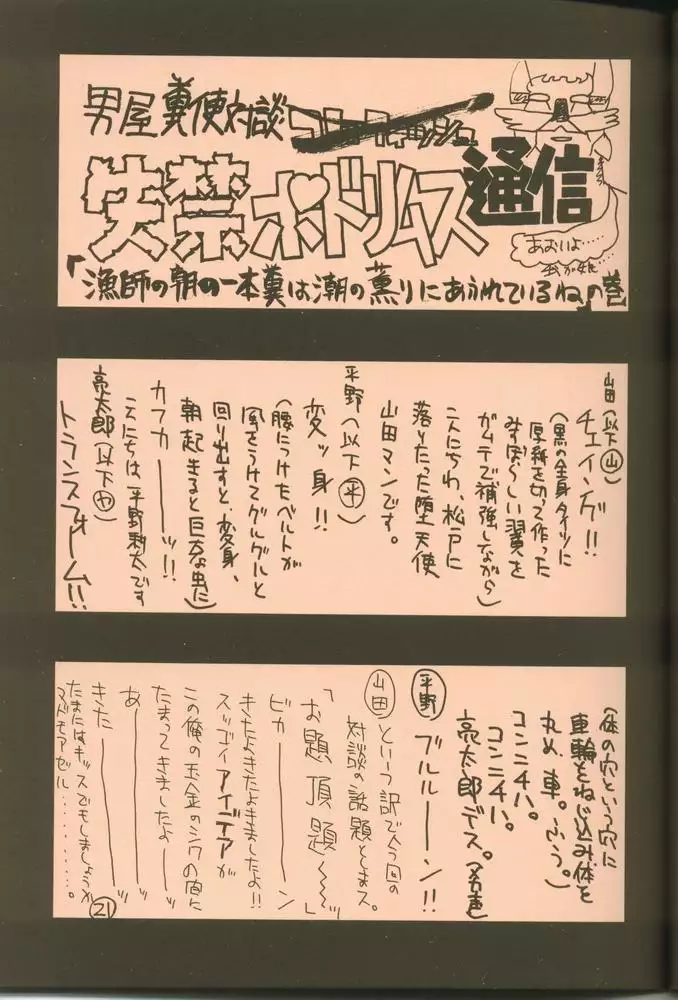 男屋糞便対談
失禁ボトムズ通信
あおいよ……
我が娘……
「漁師の朝の一本糞は潮の薫りにあふれているね」の巻
山田(以下山)
チェイング!!
(黒の全身タイツに
厚紙を切って作った
みすぼらしい翼を
ガムテで補強しながら)
こんにちわ、松戸に
落りたった堕天使
山田マンです。
平野(以下平)
変ッ身!!
(腰につけたベルトが
風をうけてグルグルと
回り出すと、変身、
朝起きると巨大な虫に)
カフカーーッ!!
こんにちは、平野耕太です
亮太郎(以下や)
トランスフォーム!!
(体の穴という穴に
車輪をねじ込み体を
丸め、車。ふう。)
コンニチハ。
コンニチハ。
亮太郎デス。(名声)
平野 ブルルーーン!!
山田 という訳で今回の
対談の話題としまス。
「お題頂題〜〜〜」
ビカーーーーン
きたよきたよきましたよ!!
スッゴイアイデアが
この俺の玉金のシワの間に
たまってきましたよーーッ
あーーーーーッ
きたーーーーーッ
たまにはキッスでもしましょうか
マドモアゼル………。
21